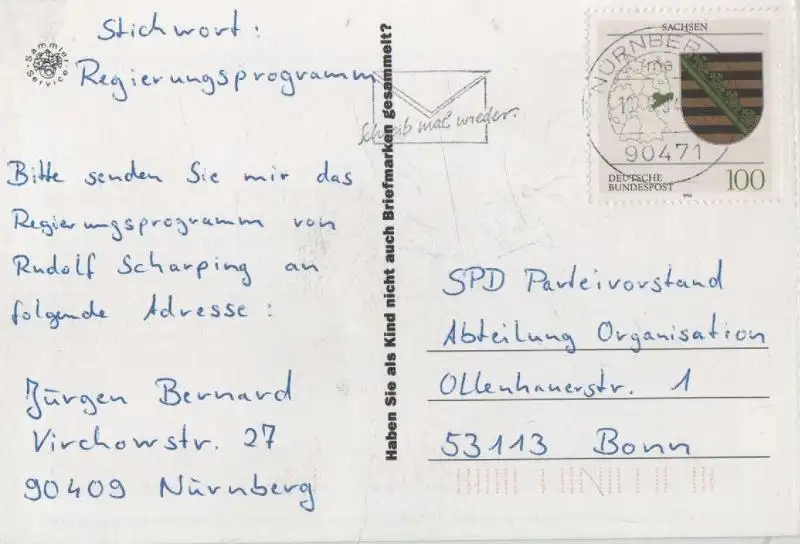 Stichwort:
Regierungsprogramm
Sammler
Service
Bitte senden Sie mir das
Regierungsprogramm von
Rudolf Scharping an
folgende Adresse:
Jürgen Bernard
Virchowstr. 27
90409 Nürnberg
Haben Sie als Kind nicht auch Briefmarken gesammelt?
Schreib mal wieder.
SACHSEN
NÜRNBERG
90471
DEUTSCHE
BUNDESPOST
100
SPD Parteivorstand
Abteilung Organisation
Ollenhauerstr. 1
53113 Bonn